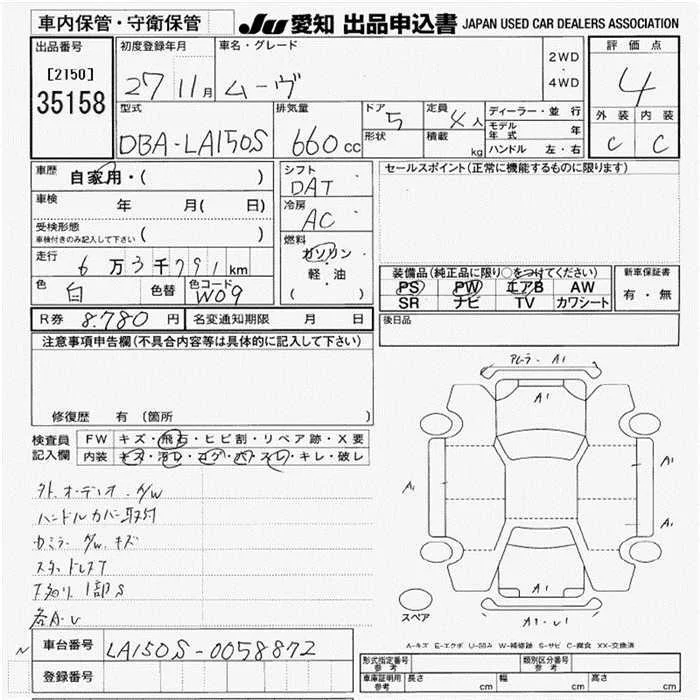 車内保管・守衛保管
JU 愛知 出品申込書 JAPAN USED CAR DEALERS ASSOCIATION
出品番号
[2150]
35158
初度登録年月
27 11月
車名・グレード
ムーヴ
2WD
・
4WD
評価点
4
外装 内装
C C
型式
DBA-LA150S
排気量
660 cc
ドア 5
形状
定員 4人
積載 kg
ディーラー・並行
モデル年式 年
ハンドル 左・右
車歴 自家用・( )
車検 年 月( 日)
受検形態
車検付きのみ記入して下さい ( )
走行 6万3千791km
色 白 色替 色コード W09
シフト
DAT
冷房
AC
燃料
ガソリン
・
軽油
( )
セールスポイント(正常に機能するものに限ります)
装備品(純正品に限り○をつけてください)
PS PW エアB AW
SR ナビ TV カワシート
新車保証書
有・無
R券 8.780円 名変通知期限 月 日
後日品
注意事項申告欄(不具合内容等は具体的に記入して下さい)
修復歴 有 (箇所
検査員記入欄
FW キズ・飛石・ヒビ割・リペア跡・X要
内装 キズ・汚レ・コゲ・穴・スレ・キレ・破レ
外.オーディオ.
ハンドルカバー取付
キズ
1部S
A1
A1
A1
A1
A1
A1
スペア
A-キズ E-エクボ U-凹み W-補修跡 S-サビ C-腐食 XX-交換済
車台番号 LA150S-0058872
登録番号
形式指定番号
参考
類別区分番号
参考
車庫証明用
参考
長さ cm 幅 cm 高さ cm